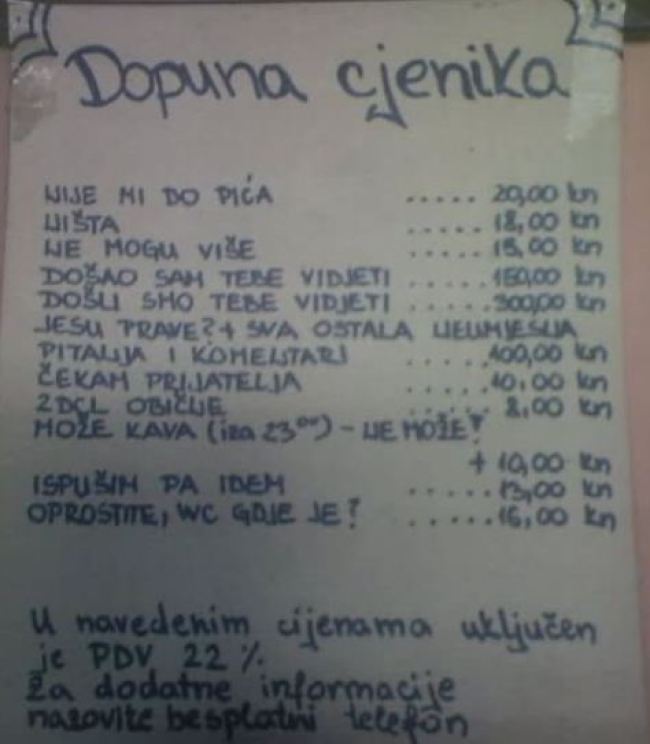 Dopuna cjenika
NIJE MI DO PIĆA ..... 20,00 kn
NIŠTA ..... 18,00 kn
NE MOGU VIŠE ..... 15,00 kn
DOŠAO SAM TEBE VIDJETI ..... 150,00 kn
DOŠLI SMO TEBE VIDJETI ..... 300,00 kn
JESU PRAVE? + SVA OSTALA NEUMJESNA
PITANJA I KOMENTARI ..... 100,00 kn
ČEKAM PRIJATELJA ..... 10,00 kn
2DCL OBIČNE ..... 8,00 kn
MOŽE KAVA (iza 23⁰⁰) - NE MOŽE?
+ 10,00 kn
ISPUŠIM PA IDEM ..... 13,00 kn
OPROSTITE, WC GDJE JE? ..... 16,00 kn
U navedenim cijenama uključen
je PDV 22 %
Za dodatne informacije
nazovite besplatni telefon